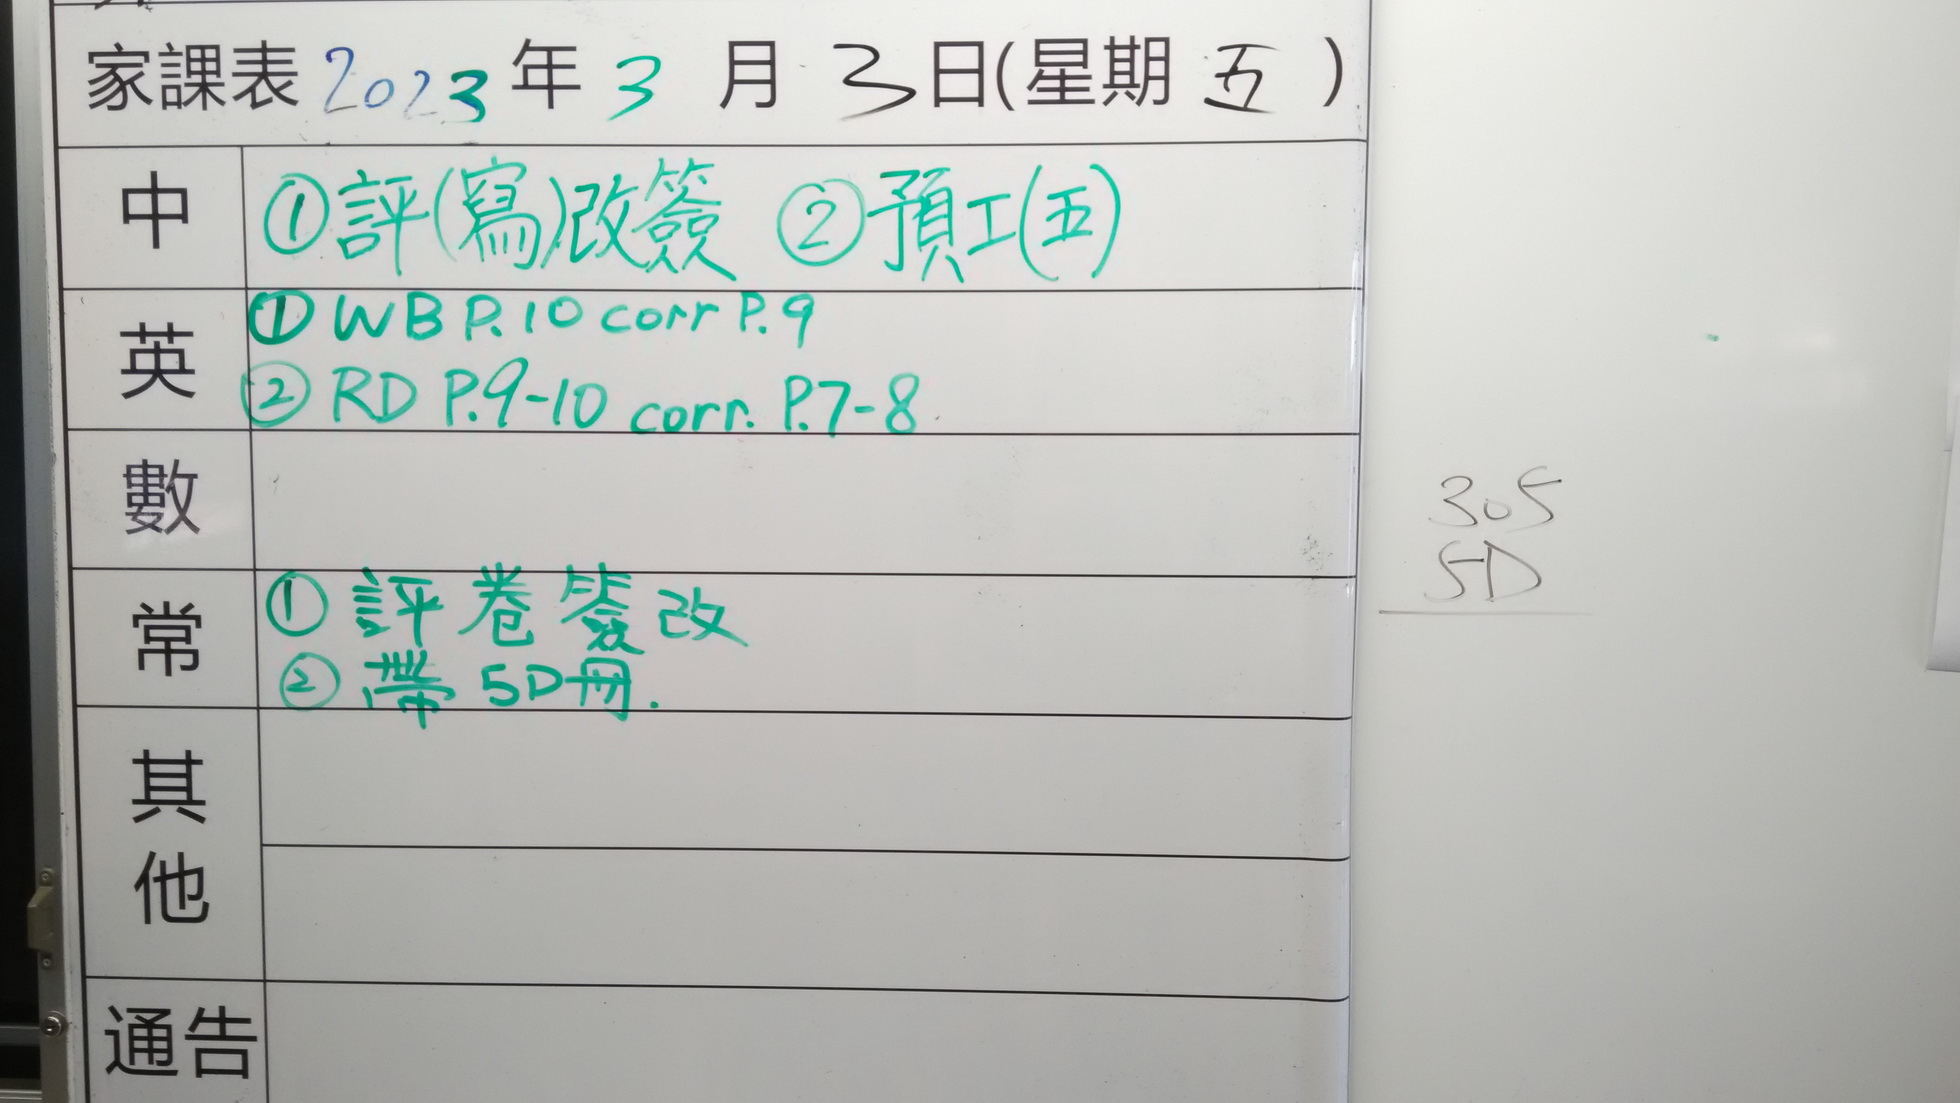 家課表 2023 年 3 月 3 日(星期 五 )
中 ①評(寫)改簽 ②預工(五)
英 ① WB P.10 corr P.9
② RD P.9-10 corr. P.7-8
數
常 ① 評卷簽改
② 帶 5D冊.
其他
通告
305
5D